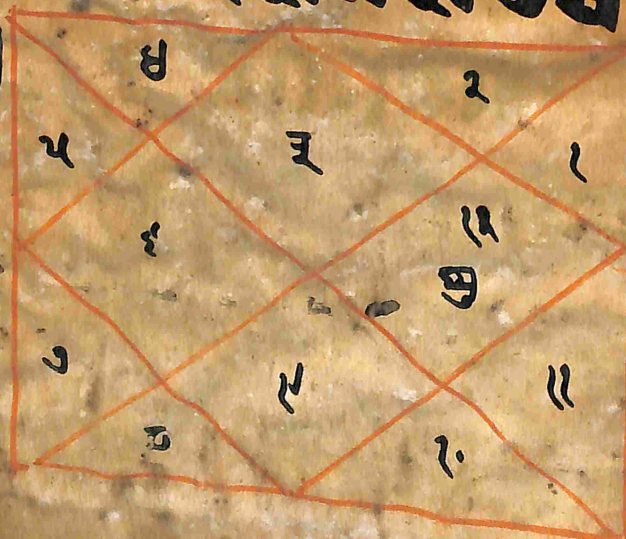 ४ २
५ ३ १
६ १२
७ ९ ११
८ १०